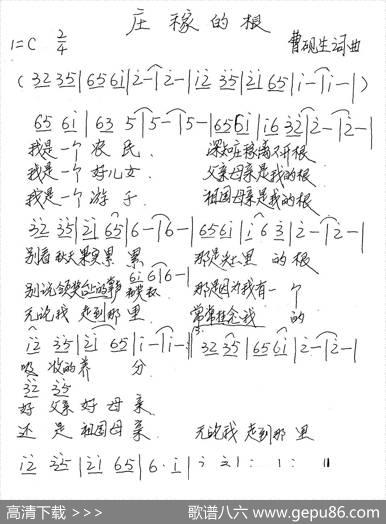 庄稼的根
1=C 2/4
曹砚生词曲
(32 35|65 6i|2-|2-|i2 35|2i 65|i-|i-|)
65 6i|63 5|5-|5-|656i|i6 32|2-|2-|
我是一个农民 深知庄稼离不开根
我是一个好儿女 父亲母亲是我的根
我是一个游子 祖国母亲是我的根
32 35|2i 65|6-|6-|656i|i6 3|2-|2-|
别看秋天果实累累 那是土里的根
6i 6|6-|
别说领奖台上的 那是因为我有一个
无论我走到那里 常常挂念我的
i2 35|2i 65|i-|i-|32 35|65 6i|2-|2-|
吸收的养分
32 35
好父亲好母亲
还是祖国母亲 无论我走到那里
i2 35|2i 65|6·i|
高清下载 >>> 歌谱八六 www.gepu86.com